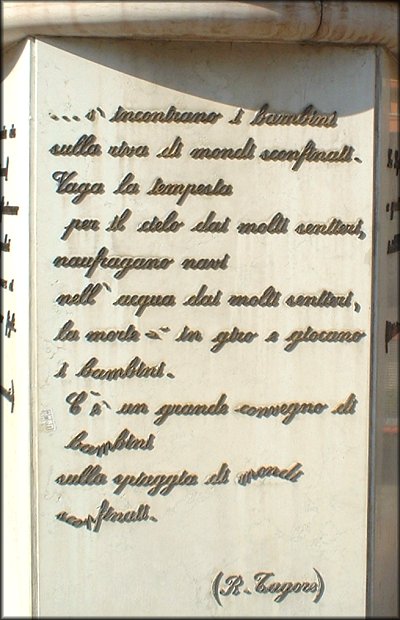 ... s' incontrano i bambini
sulla riva di mondi sconfinati.
Vaga la tempesta
per il cielo dai molti sentieri,
naufragano navi
nell' acqua dai molti sentieri,
la morte è in giro e giocano
i bambini.
C'è un grande convegno di
bambini
sulla spiaggia di mondi
sconfinati.
(R. Tagore)